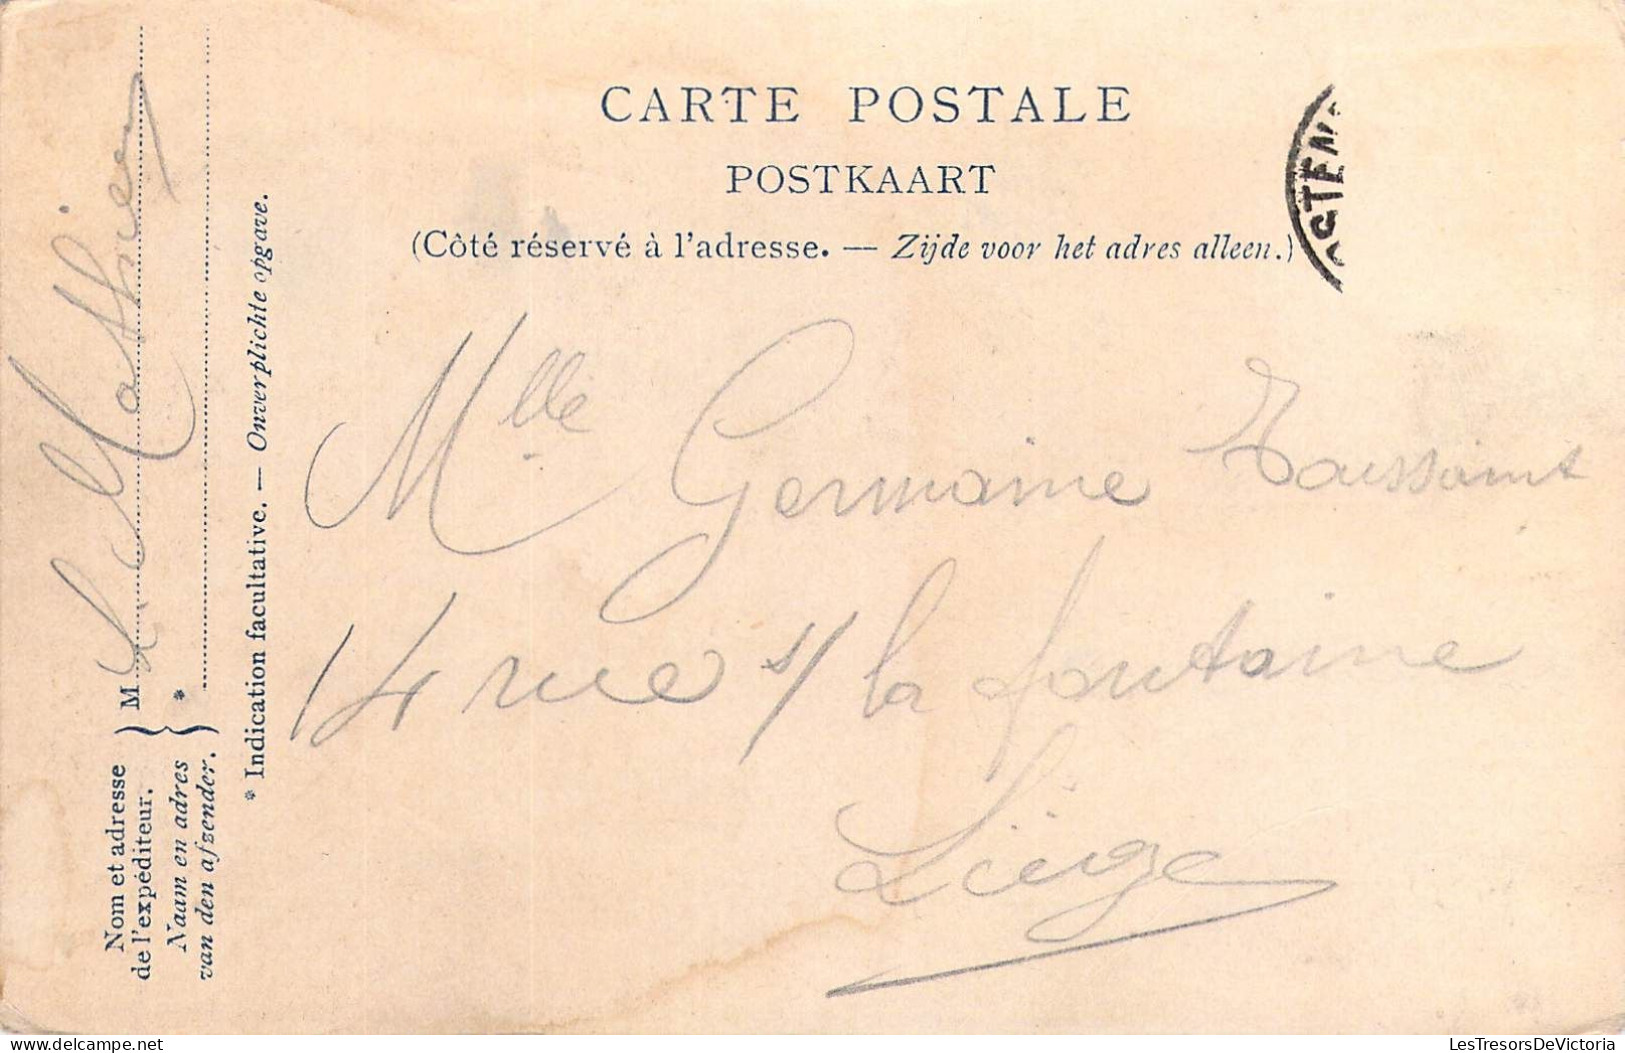 CARTE POSTALE
POSTKAART
(Côté réservé à l'adresse. — Zijde voor het adres alleen.)
Mlle Germaine Toussaint
14 rue s/ la fontaine
Liège
Nom et adresse
de l'expéditeur.
Naam en adres
van den afzender.
M L. Mathieu
*
* Indication facultative. — Onverplichte opgave.
LesTresorsDeVictoria
delcampe.net